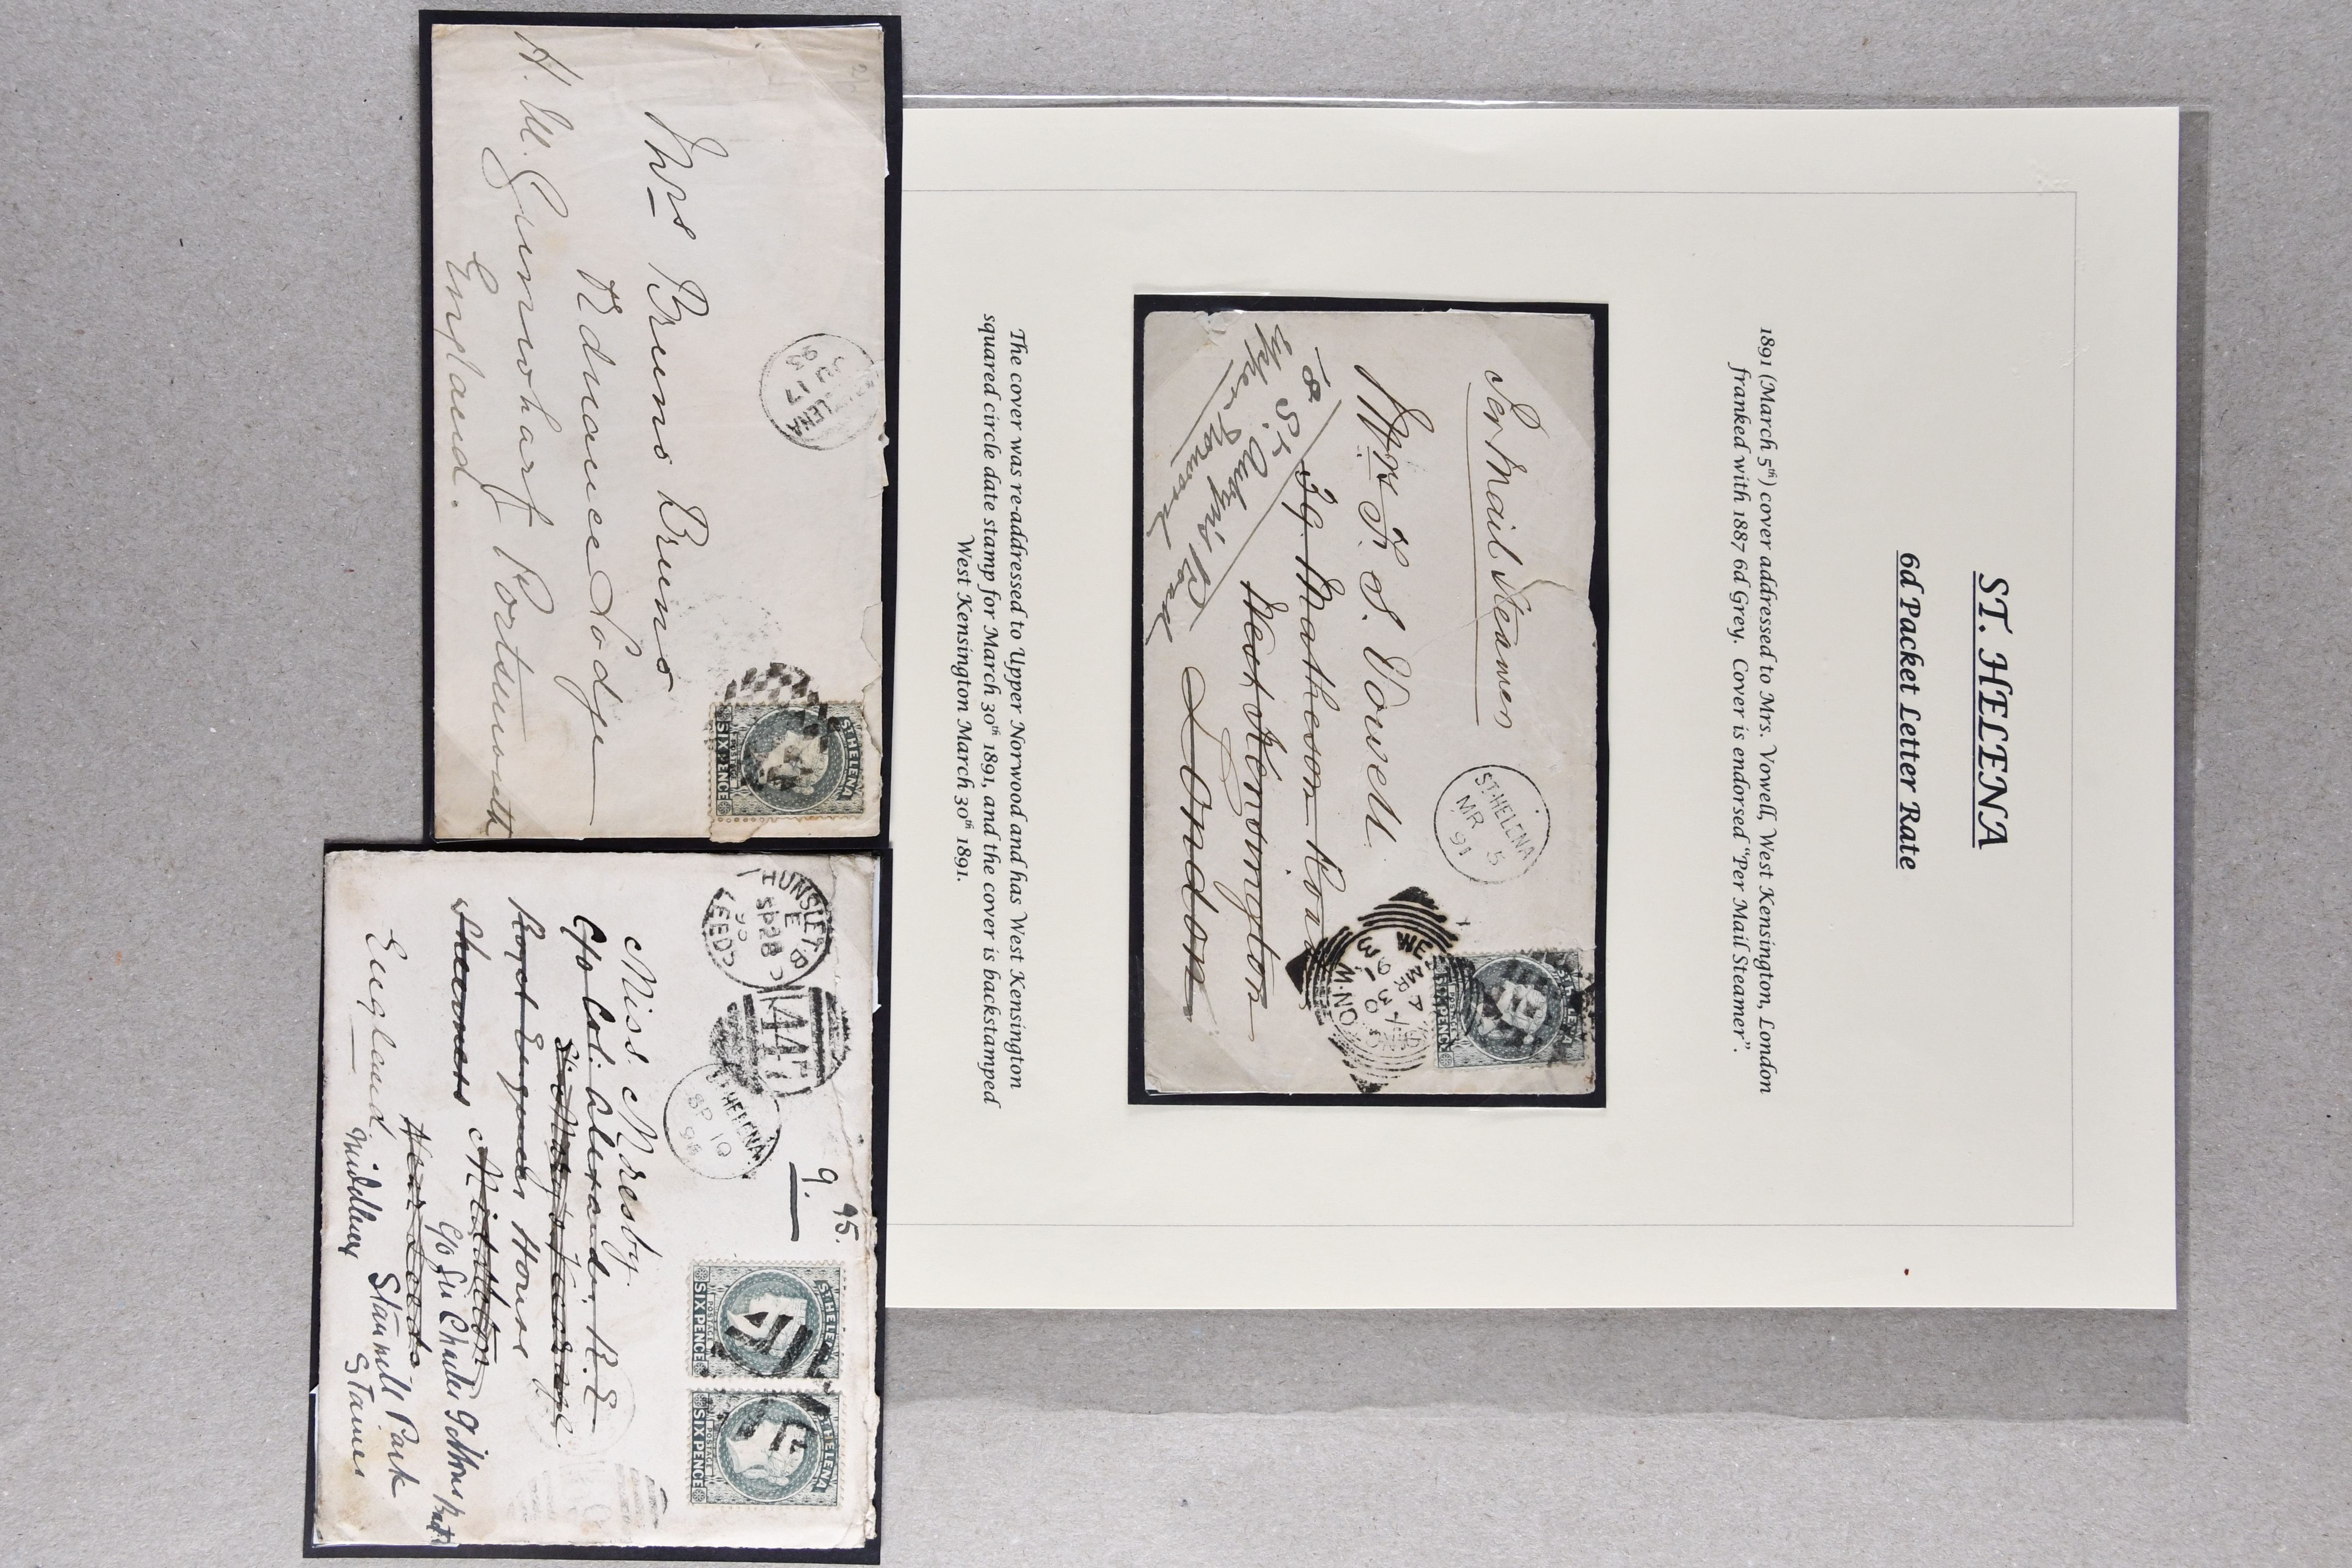 ST. HELENA
6d Packet Letter Rate
1891 (March 5th) cover addressed to Mrs. Vowell, West Kensington, London
franked with 1887 6d Grey. Cover is endorsed "Per Mail Steamer".
Per Mail Steamer
ST. HELENA
MR 5
91
ST HELENA
POSTAGE
SIX PENCE
MR 30
91
Mrs F. S. Vowell.
39. Matheson Road
West Kensington
London
18 St Aubyn's Road
Upper Norwood
The cover was re-addressed to Upper Norwood and has West Kensington
squared circle date stamp for March 30th 1891, and the cover is backstamped
West Kensington March 30th 1891.
HELENA
17
ST HELENA
SIX PENCE
Mrs Bruno Bruns
Ordnance Lodge
H. M. Gunwharf Portsmouth
England.
HUNSLET B.O
E
SP 28
LEEDS
447
ST. HELENA
SP 10
95
9. 95.
ST HELENA
POSTAGE
SIX PENCE
ST HELENA
POSTAGE
SIX PENCE
Miss Moresby
C/o Col. Alexander, R.E
St. Mary's Vicarage.
Royal Engineer House
Sheerness Middleton
Near Leeds
C/o Sir Charles Gibbons Bart
England
Stanwell Park
Staines
Middlesex